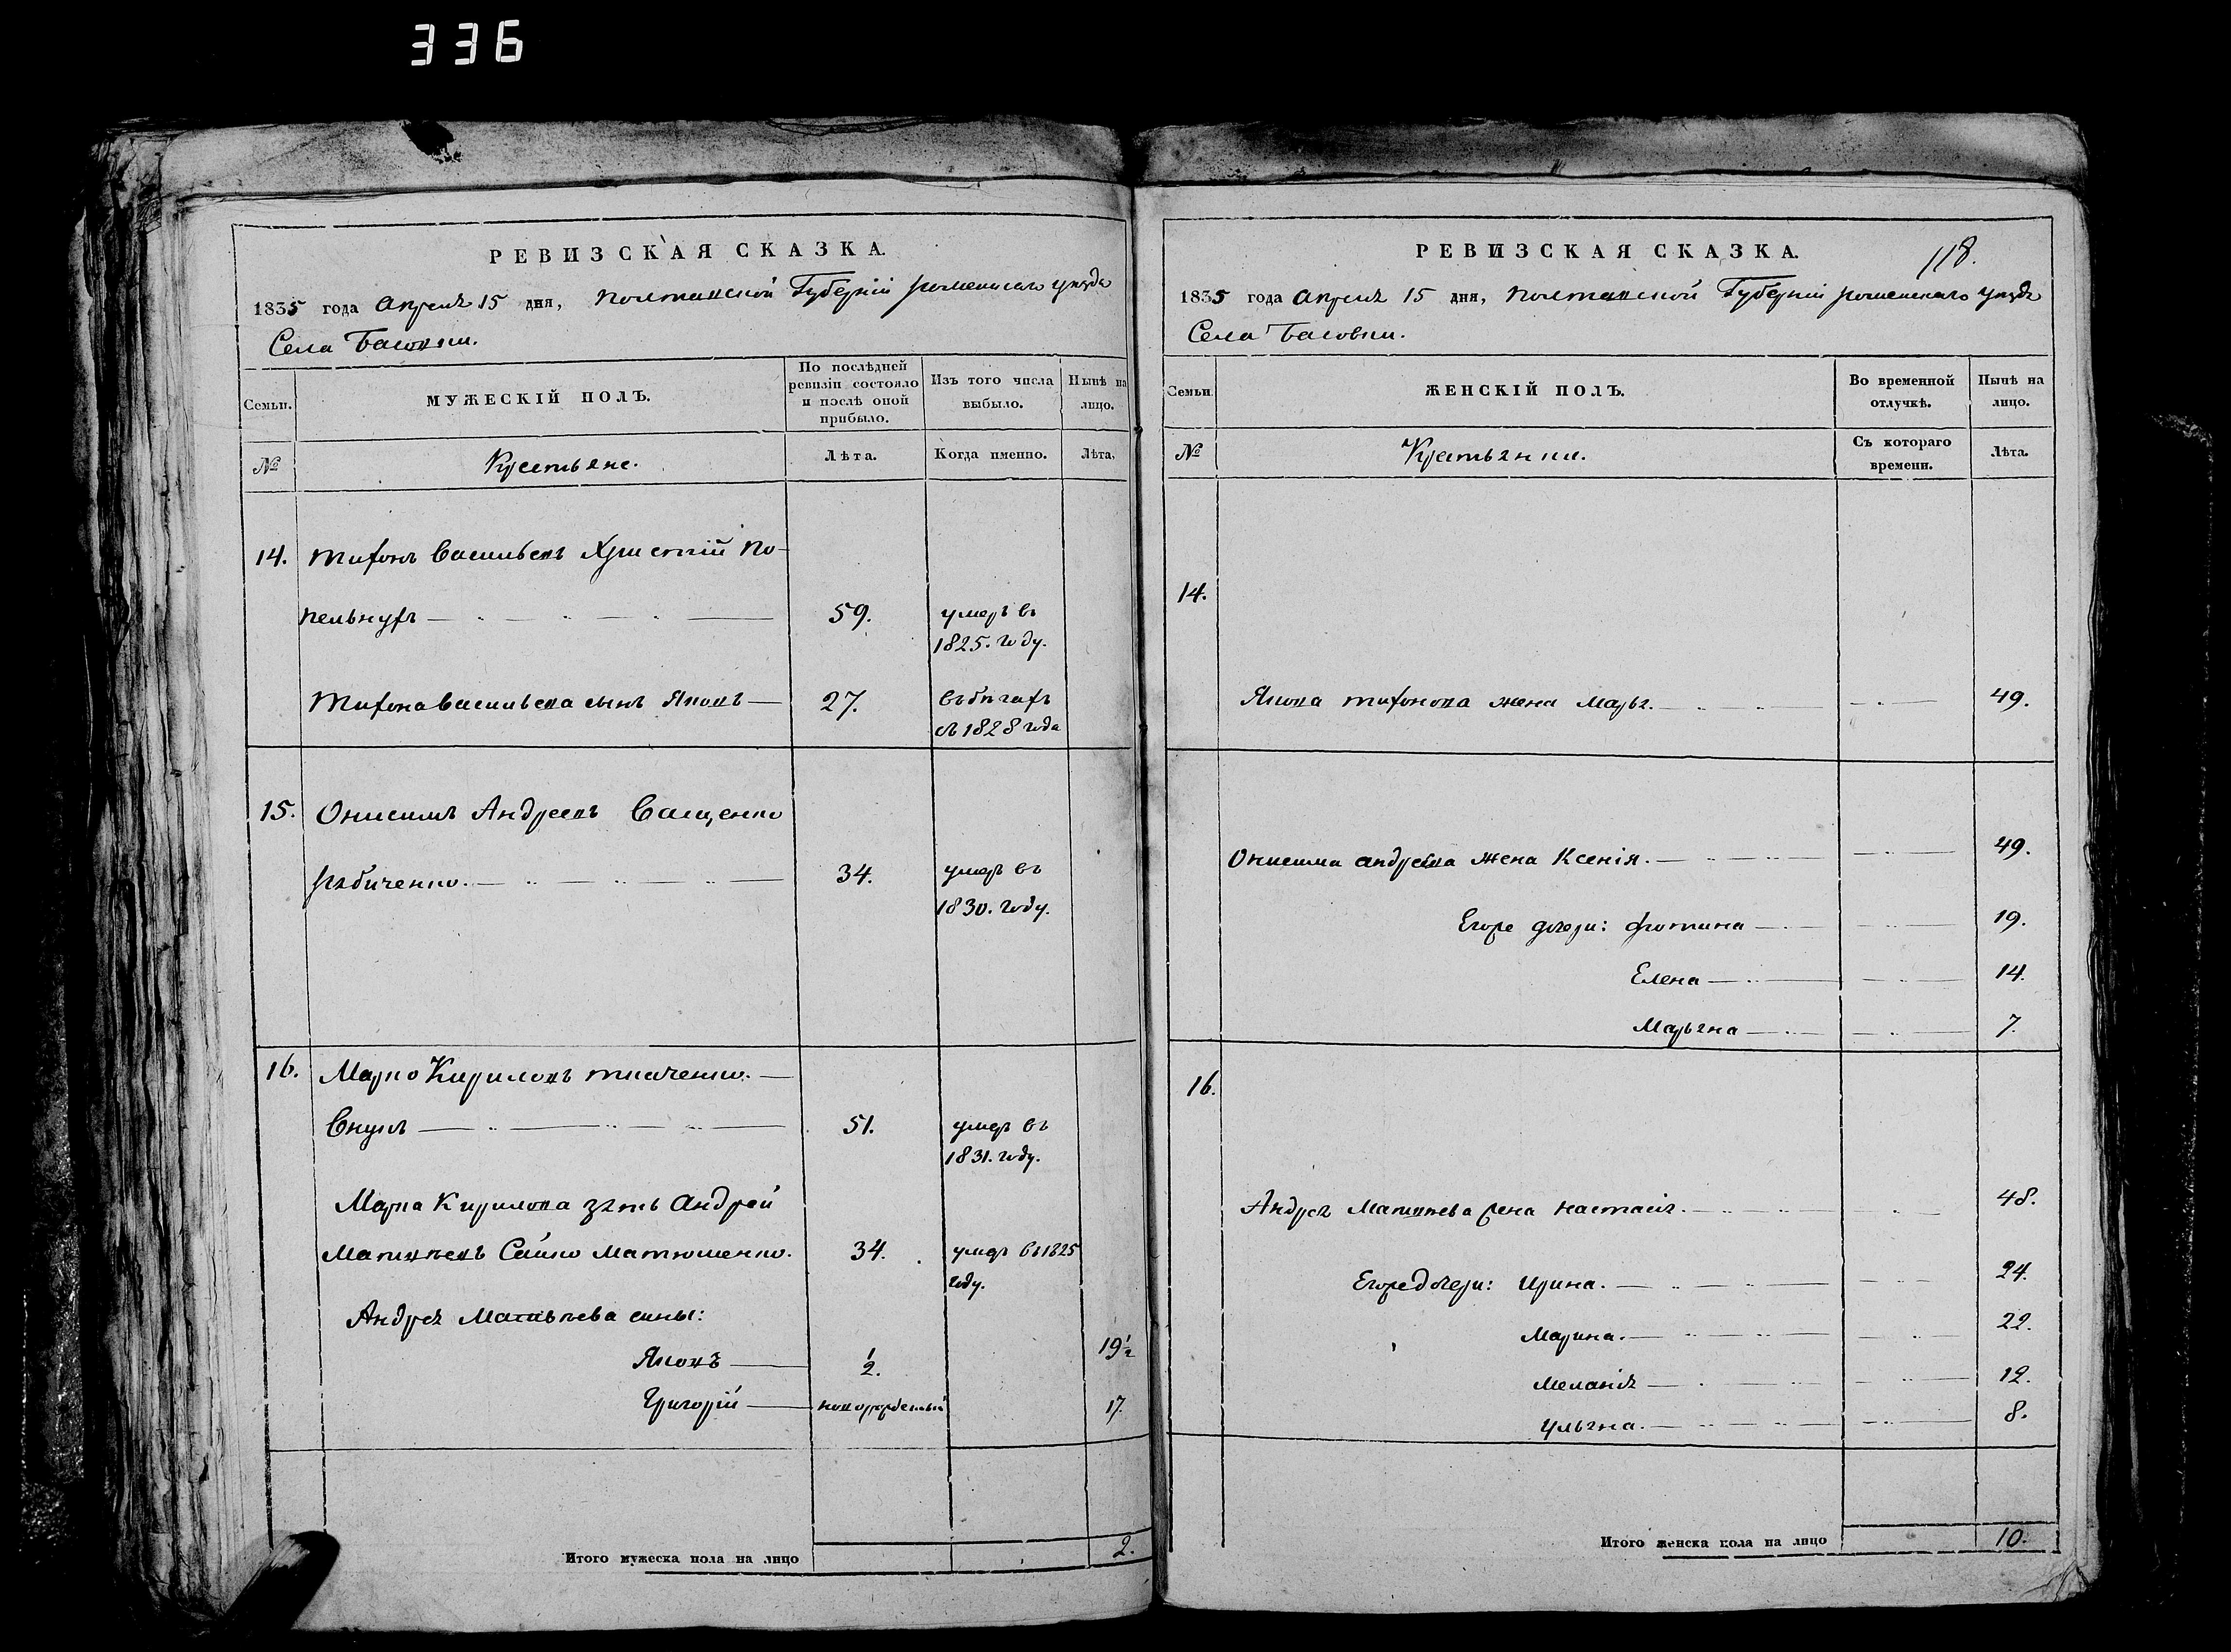 336
РЕВИЗСКАЯ СКАЗКА.
1835 года Апреля 15 дня, Полтавской Губерніи роменскаго уезда
Села Басовки.
Семьи. МУЖЕСКІЙ ПОЛЪ. По послѣдней ревизіи состояло и послѣ оной прибыло. Изъ того числа выбыло. Нынѣ на лицо.
№ Крестьяне. Лѣта. Когда именно. Лѣта.
14. Тихонъ Васильевъ По-
59. умеръ въ
1825. году.
Тихона Васильева сынъ Яковъ 27. въ бѣгахъ
съ 1828 года
15. Онисимъ Андреевъ Ващенко
рабиченко. 34. умеръ въ
1830. году.
16. Марко Кириловъ ткаченко.
Внукъ 51. умеръ въ
1831. году.
Марка Кирилова зять Андрей
Матвѣевъ Сайко Матюшенко. 34. умеръ въ 1825
году.
Андрея Матвѣева сины:
Яковъ 1/2. 19 1/2
Григорій новорожденный 17.
Итого мужеска пола на лицо 2.
118.
РЕВИЗСКАЯ СКАЗКА.
1835 года Апреля 15 дня, Полтавской Губерніи роменскаго уезда
Села Басовки.
Семьи. ЖЕНСКІЙ ПОЛЪ. Во временной отлучкѣ. Нынѣ на лицо.
№ Крестьянки. Съ котораго времени. Лѣта.
14.
Якова тихонова жена Марья. 49.
Онисима андреева жена Ксенія. 49.
Егоже дочери: фотина 19.
Елена 14.
Марьяна 7.
16.
Андрея Матвѣева жена настасія. 48.
Егоже дочери: Ирина. 24.
Марина. 22.
Меланія 12.
Ульяна. 8.
Итого женска пола на лицо 10.